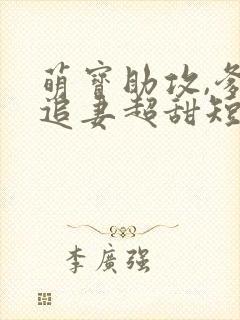 萌寶助攻,爹
追妻超甜短
李廣强